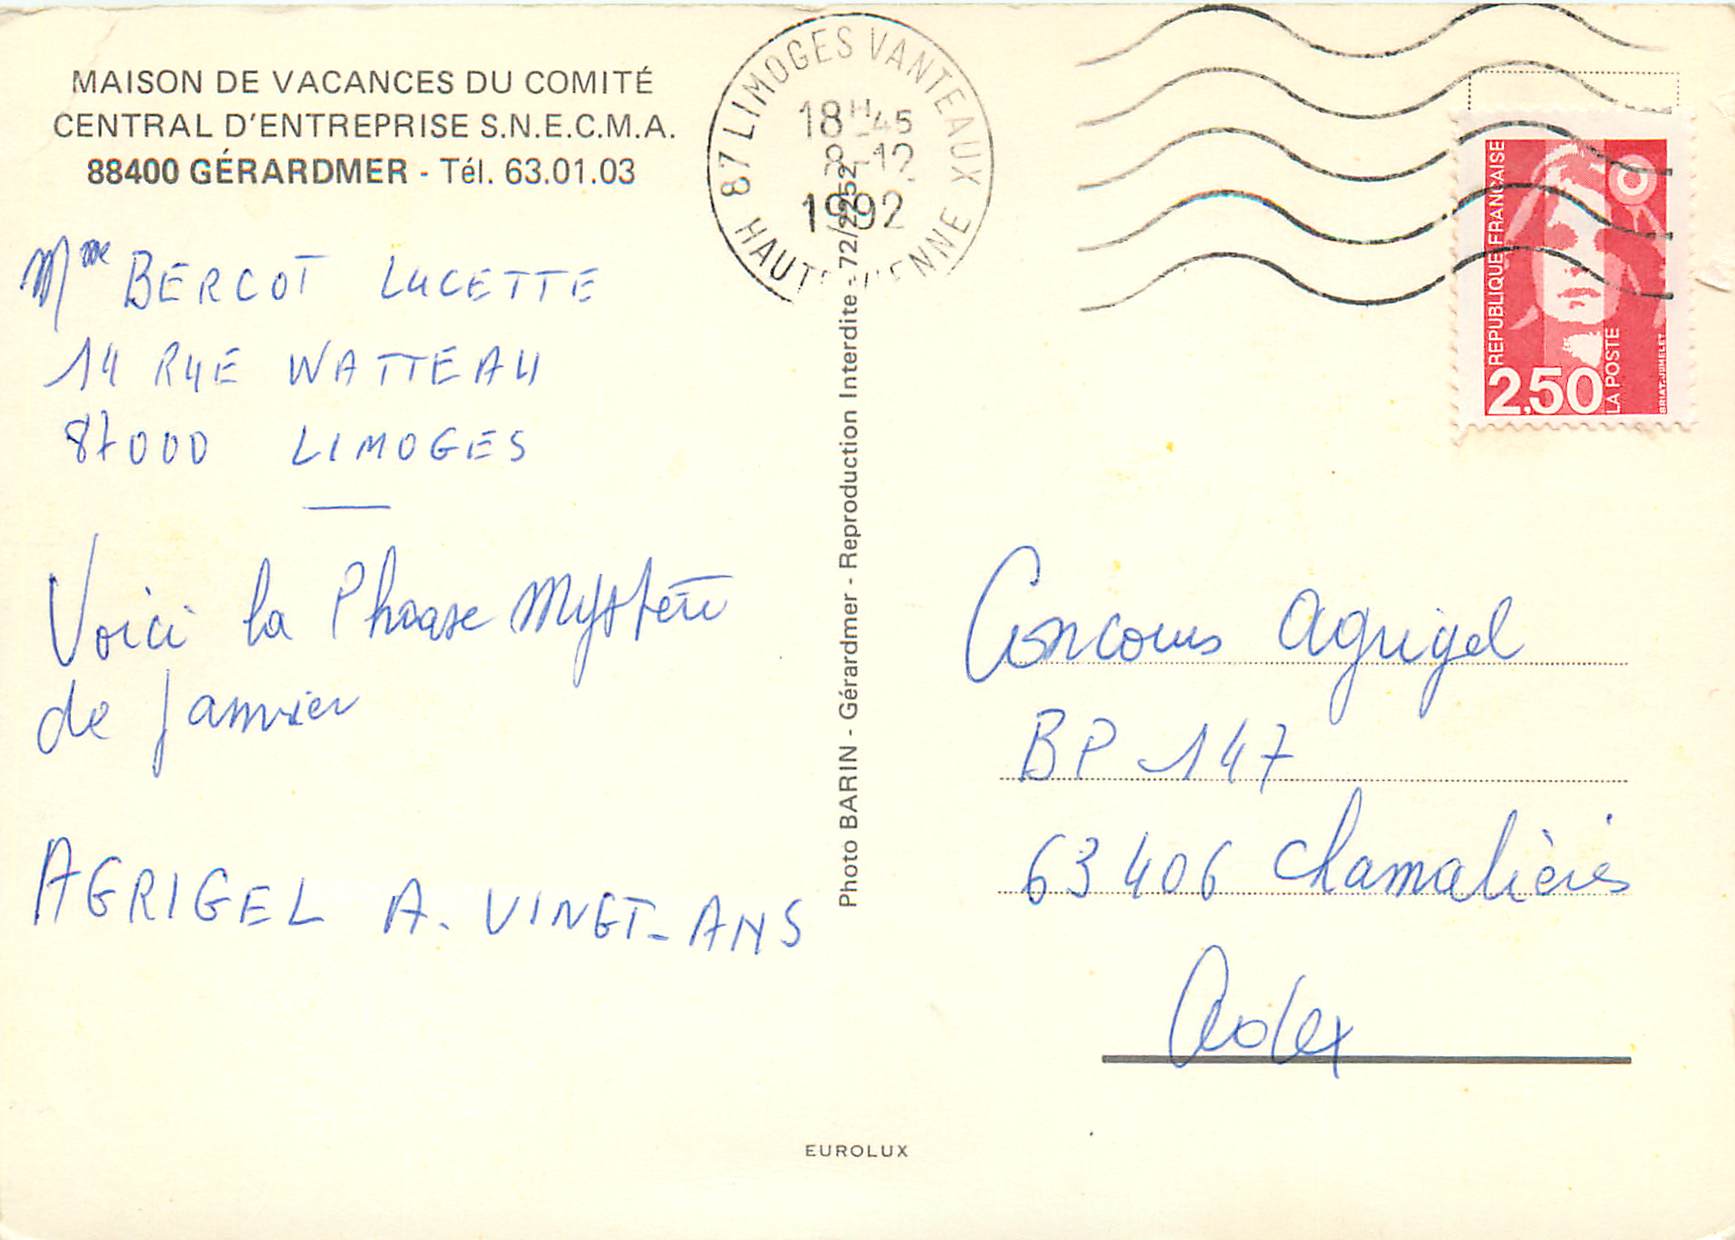 MAISON DE VACANCES DU COMITÉ
CENTRAL D'ENTREPRISE S.N.E.C.M.A.
88400 GÉRARDMER - Tél. 63.01.03
Mme BERCOT LUCETTE
14 RUE WATTEAU
87000 LIMOGES
Voici la Phrase Mystère
de Janvier
AGRIGEL A. VINGT-ANS
87 LIMOGES VANTEAUX
18H45
8-12
1992
HAUTE VIENNE
Photo BARIN - Gérardmer - Reproduction Interdite - 72/2252
REPUBLIQUE FRANÇAISE
2,50
LA POSTE
BRIAT-JUMELET
Concours Agrigel
BP 147
63406 Chamalières
Cedex
EUROLUX